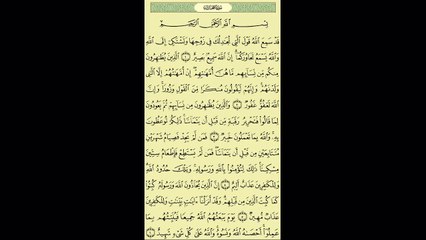 سورة المجادلة
بِسْمِ ٱللَّهِ ٱلرَّحْمَٰنِ ٱلرَّحِيمِ
قَدْ سَمِعَ ٱللَّهُ قَوْلَ ٱلَّتِى تُجَٰدِلُكَ فِى زَوْجِهَا وَتَشْتَكِىٓ إِلَى ٱللَّهِ
وَٱللَّهُ يَسْمَعُ تَحَاوُرَكُمَآ إِنَّ ٱللَّهَ سَمِيعٌۢ بَصِيرٌ ١ ٱلَّذِينَ يُظَٰهِرُونَ
مِنكُم مِّن نِّسَآئِهِم مَّا هُنَّ أُمَّهَٰتِهِمْ إِنْ أُمَّهَٰتُهُمْ إِلَّا ٱلَّٰٓـِٔى
وَلَدْنَهُمْ وَإِنَّهُمْ لَيَقُولُونَ مُنكَرًا مِّنَ ٱلْقَوْلِ وَزُورًا وَإِنَّ
ٱللَّهَ لَعَفُوٌّ غَفُورٌ ٢ وَٱلَّذِينَ يُظَٰهِرُونَ مِن نِّسَآئِهِمْ ثُمَّ يَعُودُونَ
لِمَا قَالُوا۟ فَتَحْرِيرُ رَقَبَةٍ مِّن قَبْلِ أَن يَتَمَآسَّا ذَٰلِكُمْ تُوعَظُونَ
بِهِۦ وَٱللَّهُ بِمَا تَعْمَلُونَ خَبِيرٌ ٣ فَمَن لَّمْ يَجِدْ فَصِيَامُ شَهْرَيْنِ
مُتَتَابِعَيْنِ مِن قَبْلِ أَن يَتَمَآسَّا فَمَن لَّمْ يَسْتَطِعْ فَإِطْعَامُ سِتِّينَ
مِسْكِينًا ذَٰلِكَ لِتُؤْمِنُوا۟ بِٱللَّهِ وَرَسُولِهِۦ وَتِلْكَ حُدُودُ ٱللَّهِ
وَلِلْكَٰفِرِينَ عَذَابٌ أَلِيمٌ ٤ إِنَّ ٱلَّذِينَ يُحَآدُّونَ ٱللَّهَ وَرَسُولَهُۥ كُبِتُوا۟
كَمَا كُبِتَ ٱلَّذِينَ مِن قَبْلِهِمْ وَقَدْ أَنزَلْنَآ ءَايَٰتٍۭ بَيِّنَٰتٍ وَلِلْكَٰفِرِينَ
عَذَابٌ مُّهِينٌ ٥ يَوْمَ يَبْعَثُهُمُ ٱللَّهُ جَمِيعًا فَيُنَبِّئُهُم بِمَا
عَمِلُوٓا۟ أَحْصَىٰهُ ٱللَّهُ وَنَسُوهُ وَٱللَّهُ عَلَىٰ كُلِّ شَىْءٍ شَهِيدٌ ٦